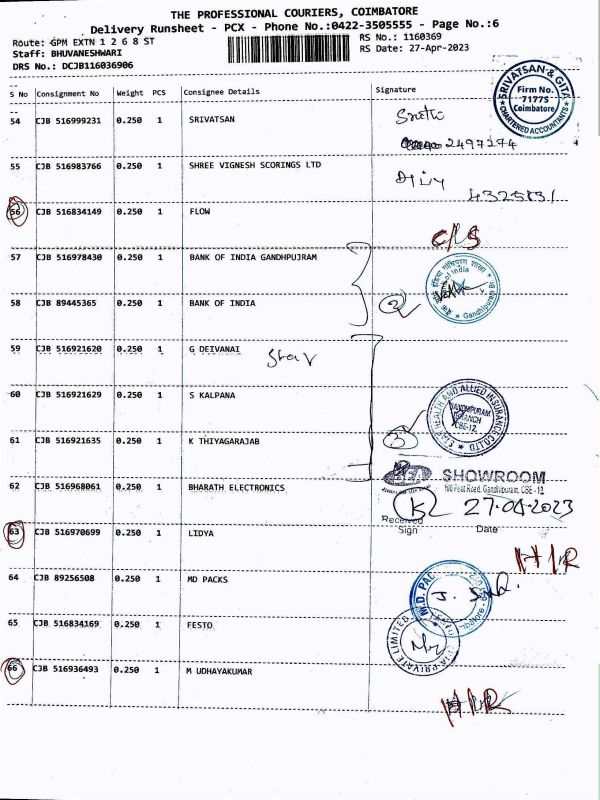 THE PROFESSIONAL COURIERS, COIMBATORE
Delivery Runsheet - PCX - Phone No.:0422-3505555 - Page No.:6
Route: GPM EXTN 1 2 6 8 ST
RS No.: 1160369
Staff: BHUVANESHWARI
RS Date: 27-Apr-2023
DRS No.: DCJB116036906
S No Consignment No Weight PCS Consignee Details Signature
SRIVATSAN & GITA
Firm No.
7177S
Coimbatore
CHARTERED ACCOUNTANTS
54 CJB 516999231 0.250 1 SRIVATSAN
2497274
55 CJB 516983766 0.250 1 SHREE VIGNESH SCORINGS LTD
56 CJB 516834149 0.250 1 FLOW
C/S
57 CJB 516978430 0.250 1 BANK OF INDIA GANDHPUJRAM
58 CJB 89445365 0.250 1 BANK OF INDIA
2
59 CJB 516921620 0.250 1 G DEIVANAI
Star
60 CJB 516921629 0.250 1 S KALPANA
STAR HEALTH AND ALLIED INSURANCE CO LTD
GANDHIPURAM
BRANCH
CBE-12
61 CJB 516921635 0.250 1 K THIYAGARAJAB
3
62 CJB 516968061 0.250 1 BHARATH ELECTRONICS
SHOWROOM
27-04-2023
Received
Sign
Date
63 CJB 516970699 0.250 1 LIDYA
HIR
64 CJB 89256508 0.250 1 MD PACKS
65 CJB 516834169 0.250 1 FESTO
66 CJB 516936493 0.250 1 M UDHAYAKUMAR
HIR